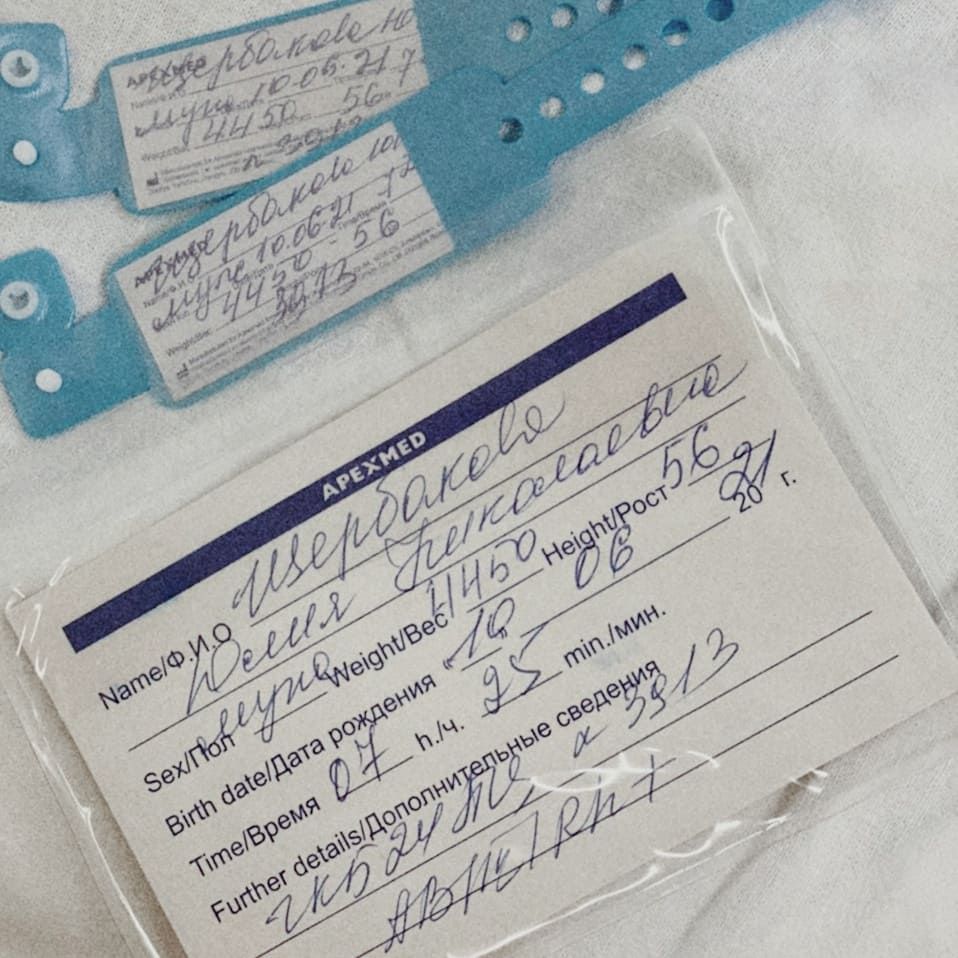 APEXMED
Щербакова
10.06.21 7
4450 56
APEXMED
Щербакова
10.06.21
4450 56
3913
Weight/Вес
APEXMED
Name/Ф.И.О Щербакова
Юлия Николаевна
Sex/Пол муж Weight/Вес 4450 Height/Рост 56
Birth date/Дата рождения 10 06 2021 г.
Time/Время 07 h./ч. 25 min./мин.
Further details/Дополнительные сведения
ГКБ 24 3913
Rh +